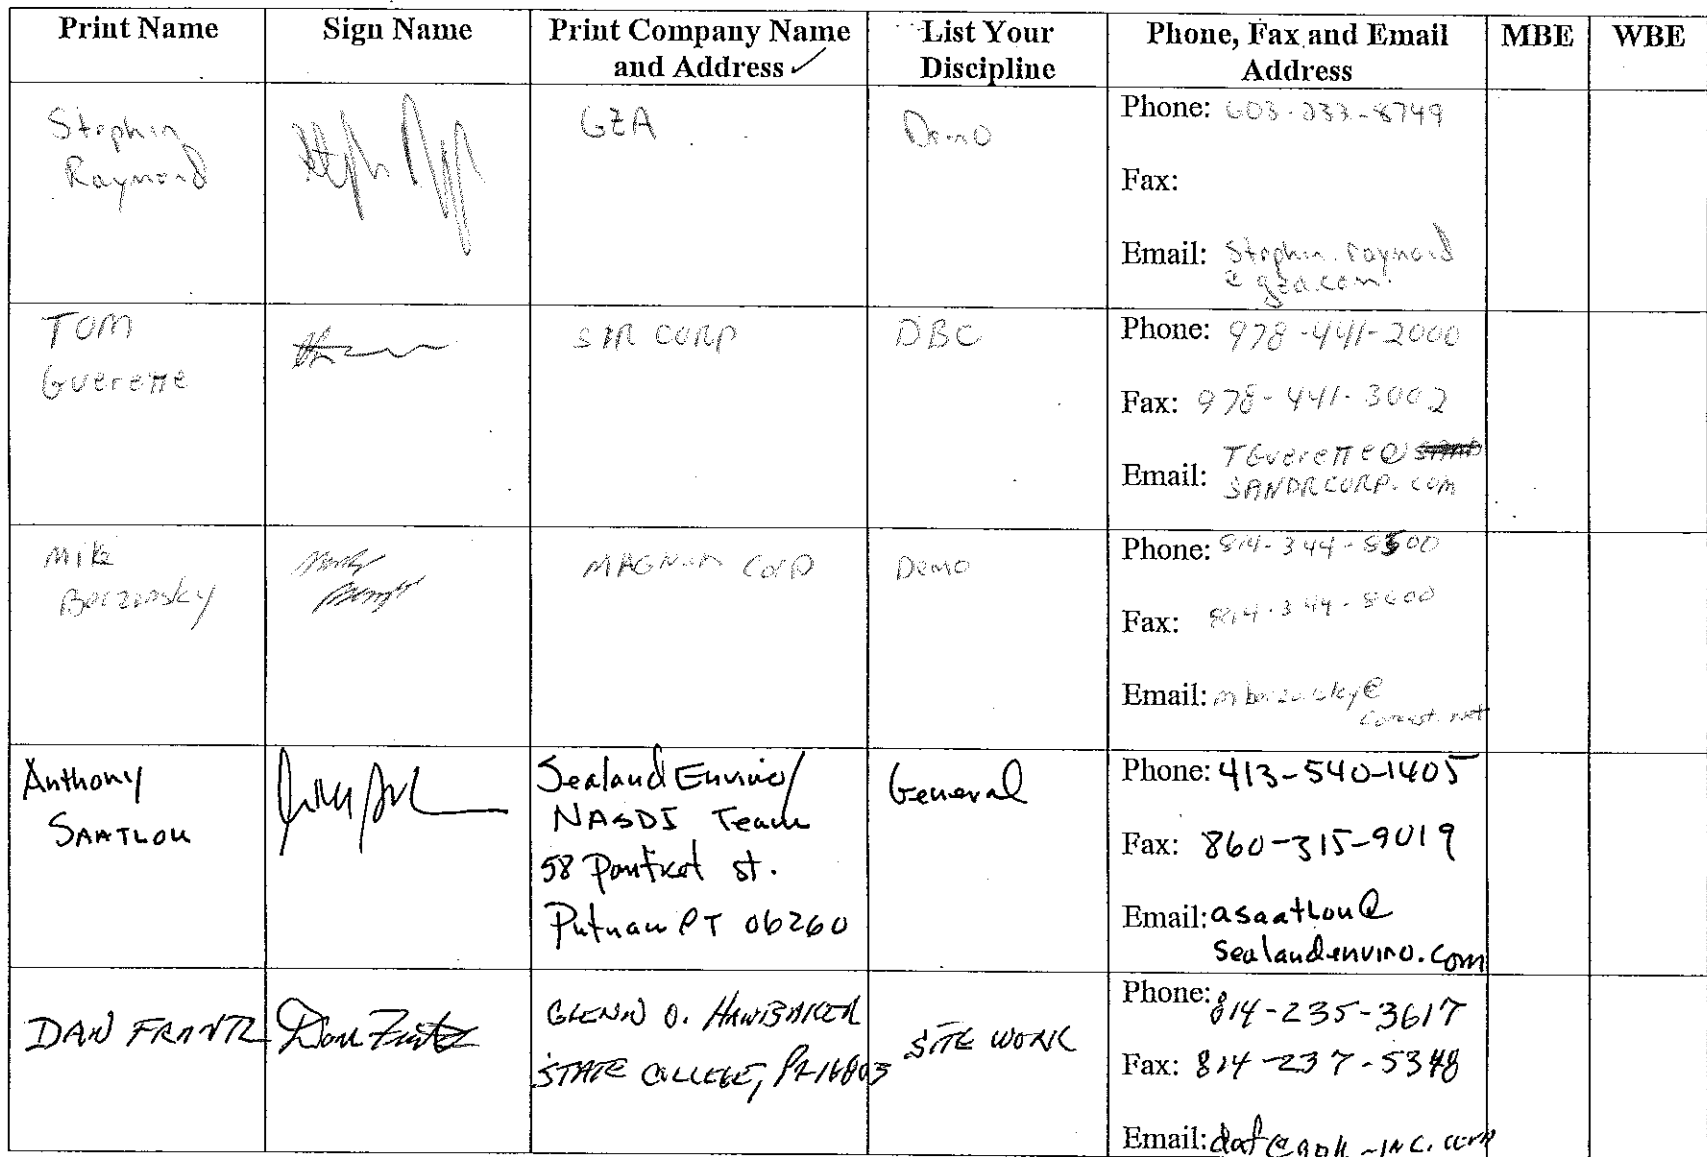 Print Name Sign Name Print Company Name and Address ✓ List Your Discipline Phone, Fax and Email Address MBE WBE
Stephen
Raymond
GZA
Demo
Phone: 603-233-8749
Fax:
Email: Stephen.raymond
@gza.com
TOM
Guerette
S&R CORP
DBC
Phone: 978-441-2000
Fax: 978-441-3002
Email: TGuerette@
SANDRCORP.COM
Mike
MAGNUM Corp
Demo
Phone: 814-344-8500
Fax: 814-344-8600
Email:
Anthony
SAATLOU
Sealand Enviro/
NASDI Team
58 st.
Putnam CT 06260
General
Phone: 413-540-1405
Fax: 860-315-9019
Email: asaatlou@
sealandenviro.com
DAN FRANTZ
Dan Frantz
GLENN O. HAWBAKER
STATE COLLEGE, PA 16803
SITE WORK
Phone: 814-235-3617
Fax: 814-237-5348
Email: daf@goh-INC.com